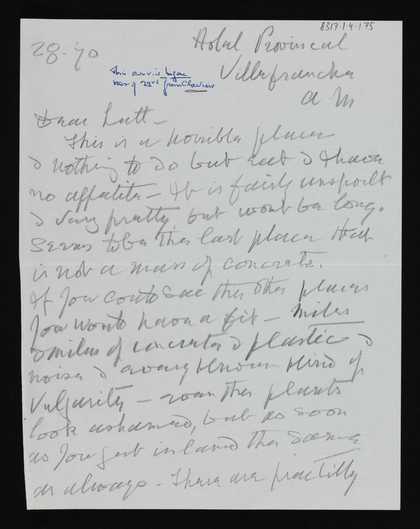 8317/1/4/175
28-70
Hotel Provincial
Villefranche
A M
Dear Lett -
This is a horrible place
& nothing to do but eat & I have
no appetite - It is fairly unspoilt
& very pretty but wont be long.
Seems to be the last place that
is not a mass of concrete.
If you could see the other places
you would have a fit - miles
& miles of concrete & plastic &
noise & every known kind of
Vulgarity - even the plants
look ashamed, but as soon
as you get inland the same
as always - There are practilly